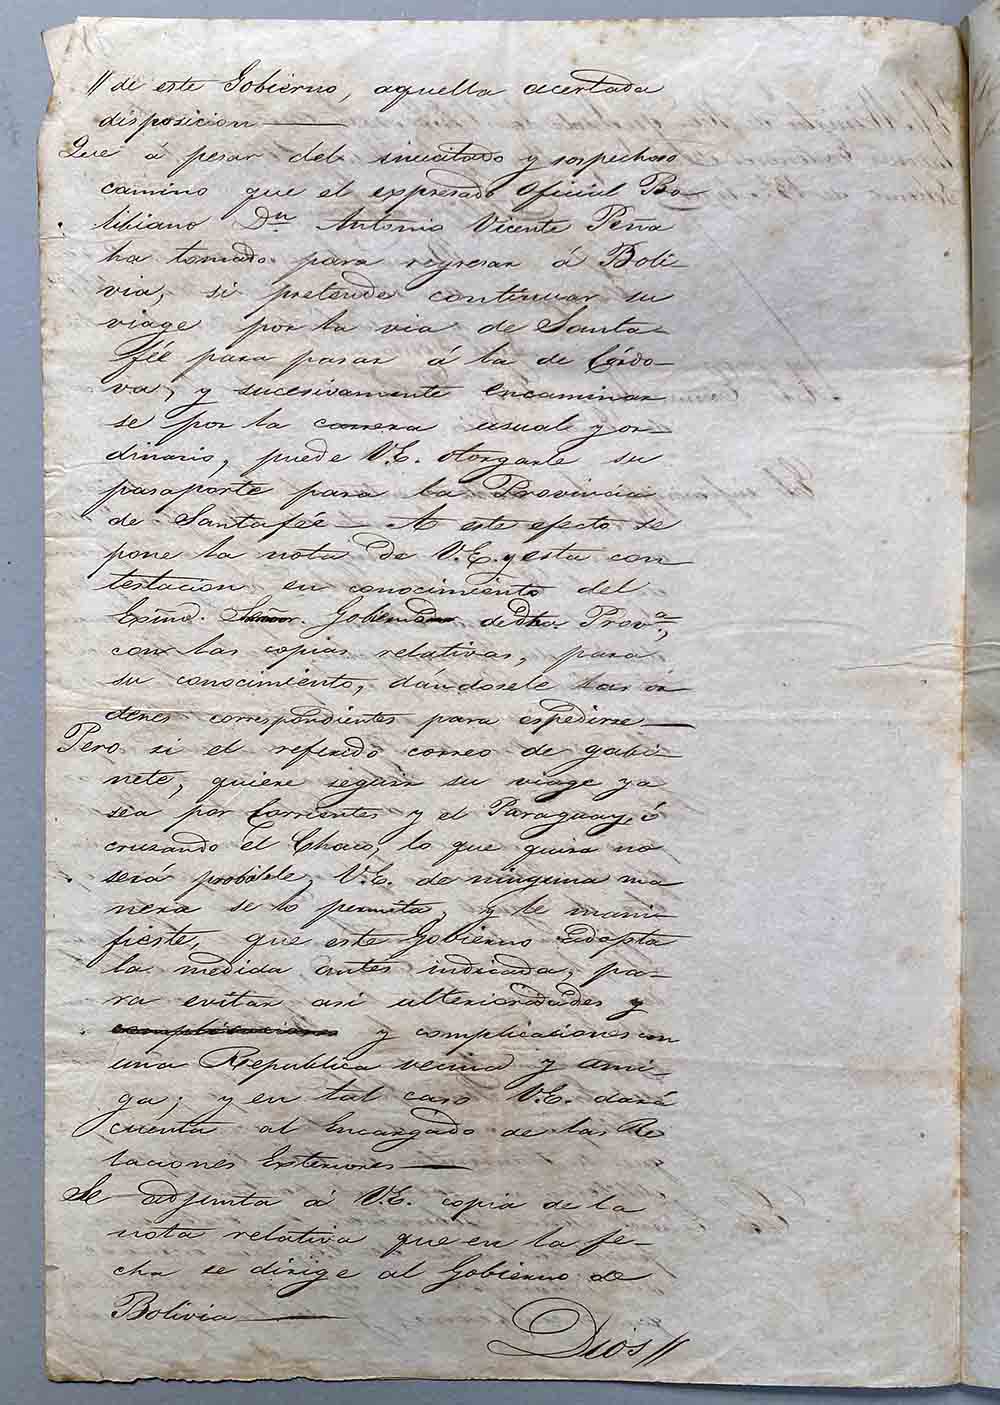 // de este Gobierno, aquella acertada
disposicion —
Que á pesar del inusitado y sospechoso
camino que el expresado Oficial Bo-
libiano Dn. Antonio Vicente Peña
ha tomado para regresar á Boli-
via, si pretende continuar su
viage por la via de Santa-
fée para pasar á la de Córdo-
va, y sucesivamente encaminar
se por la carrera usual y or-
dinario, puede V.E. otorgarle su
pasaporte para la Provincia
de Santafée — A este efecto se
pone la nota de V.E. y esta con
testacion en conocimiento del
Exmo. Señor. Gobernador de dha. Prova.,
con las copias relativas, para
su conocimiento, dándosele las ór
denes correspondientes para espedirse —
Pero si el referido correo de gabi-
nete, quiere seguir su viage ya
sea por Corrientes y el Paraguay, ó
cruzando el Chaco, lo que quiza no
será probable, V.E. de ninguna ma
nera se lo permita, y le mani-
fieste, que este Gobierno adopta
la medida antes indicada, pa-
ra evitar asi ulterioridades y
complicaciones y complicaciones con
una Republica vecina y ami-
ga; y en tal caso V.E. dará
cuenta al Encargado de las Re
laciones Exteriores —
Se adjunta á V.E. copia de la
nota relativa que en la fe-
cha se dirige al Gobierno de
Bolivia —
Dios //